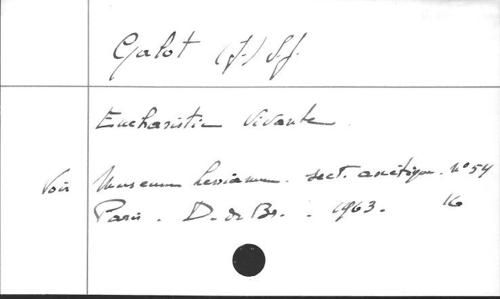 Galot (J.) S.J.
Eucharistie Vivante.
Voir Museum lessianum. sect. ascétique. n° 54
Paris. D. de Br. . 1963. 16